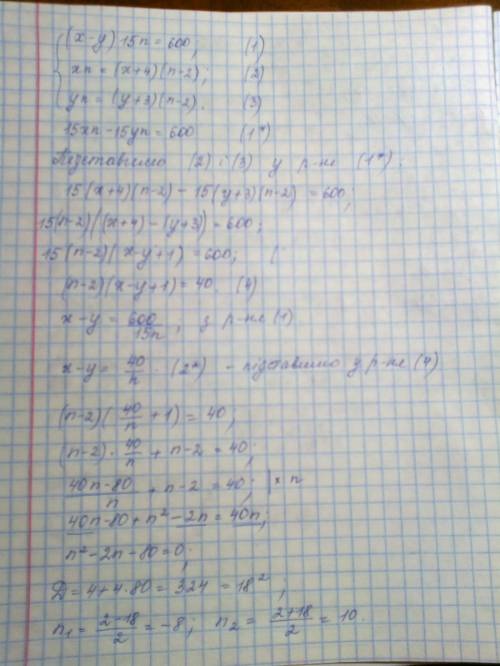 (x-y)15n=600; (1)
xn=(x+4)(n-2); (2)
yn=(y+3)(n-2). (3)
15xn-15yn=600 (1*)
Підставимо (2) і (3) у р-не (1*).
15(x+4)(n-2)-15(y+3)(n-2)=600;
15(n-2)((x+4)-(y+3))=600;
15(n-2)(x-y+1)=600; (
(n-2)(x-y+1)=40. (4)
x-y=600/15n; з р-не (1)
x-y=40/n. (2*) - підставимо у р-не (4)
(n-2)(40/n+1)=40;
(n-2)·40/n+n-2=40;
(40n-80)/n+n-2=40; |×n
40n-80+n²-2n=40n;
n²-2n-80=0;
Д=4+4·80=324=18²;
n₁=(2-18)/2=-8; n₂=(2+18)/2=10.